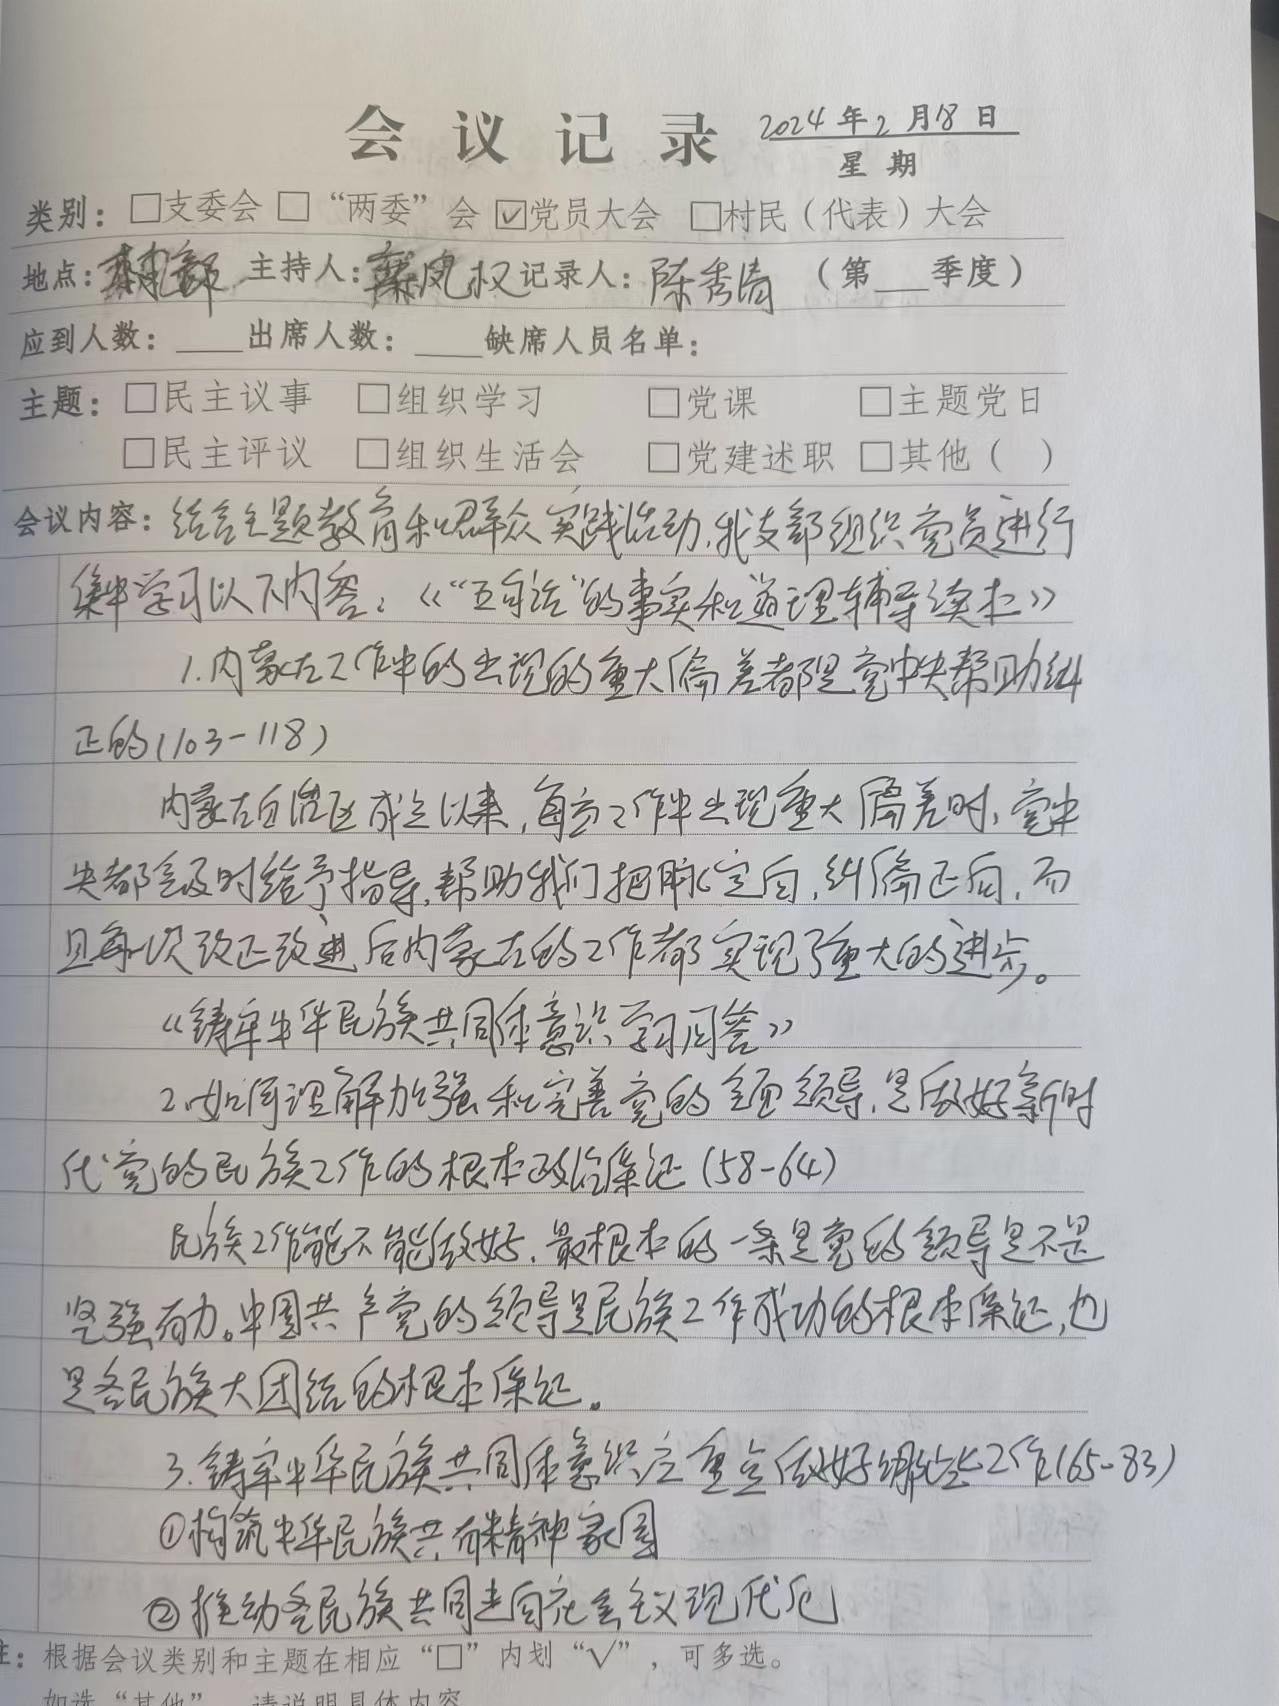 会议记录 2024年2月18日
星期
类别：□支委会 □“两委”会 ☑党员大会 □村民（代表）大会
地点： 主持人：凤权 记录人：陈秀清 （第___季度）
应到人数：____出席人数：____缺席人员名单：
主题：□民主议事 □组织学习 □党课 □主题党日
□民主评议 □组织生活会 □党建述职 □其他（ ）
会议内容：结合主题教育和群众实践活动,我支部组织党员进行
集中学习以下内容：《“五句话”的事实和道理辅导读本》
1.内蒙古工作中的出现的重大偏差都是党中央帮助纠
正的(103-118)
内蒙古自治区成立以来,每当工作中出现重大偏差时,党中
央都会及时给予指导,帮助我们把脉定向,纠偏正向,而
且每一次改正改进后内蒙古的工作都实现了重大的进步。
《铸牢中华民族共同体意识学习问答》
2.如何理解加强和完善党的全面领导,是做好新时
代党的民族工作的根本政治保证(58-64)
民族工作能不能做好,最根本的一条是党的领导是不是
坚强有力。中国共产党的领导是民族工作成功的根本保证,也
是各民族大团结的根本保证。
3.铸牢中华民族共同体意识应重点做好哪些工作(65-83)
①构筑中华民族共有精神家园
②推动各民族共同走向社会主义现代化
注：根据会议类别和主题在相应“□”内划“√”，可多选。
如选“其他”，请说明具体内容